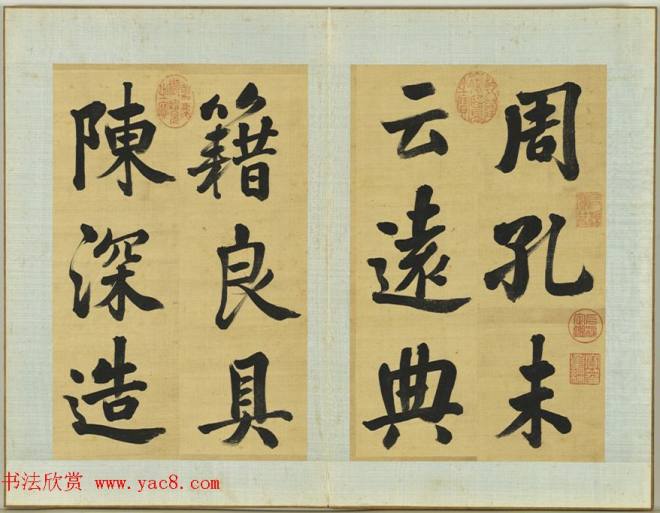 周孔未
云遠典
籍良具
陳深造
书法欣赏 www.yac8.com